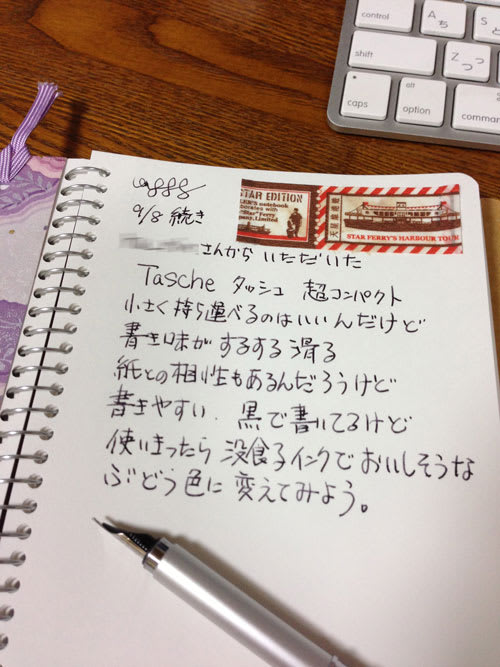 control
A
ち
S
と
shift
Z
つ
っ
caps
alt
option
comman
STAR EDITION
LER'S notebook
borates with
"Star" Ferry
pany, Limited
天星小輪
STAR FERRY'S HARBOUR TOUR
9/8 続き
さんから いただいた
Tasche タッシュ 超コンパクト
小さく持ち運べるのはいいんだけど
書き味がするする滑る
紙との相性もあるんだろうけど
書きやすい、黒で書いてるけど
使いきったら 没食子インクでおいしそうな
ぶどう色に変えてみよう。